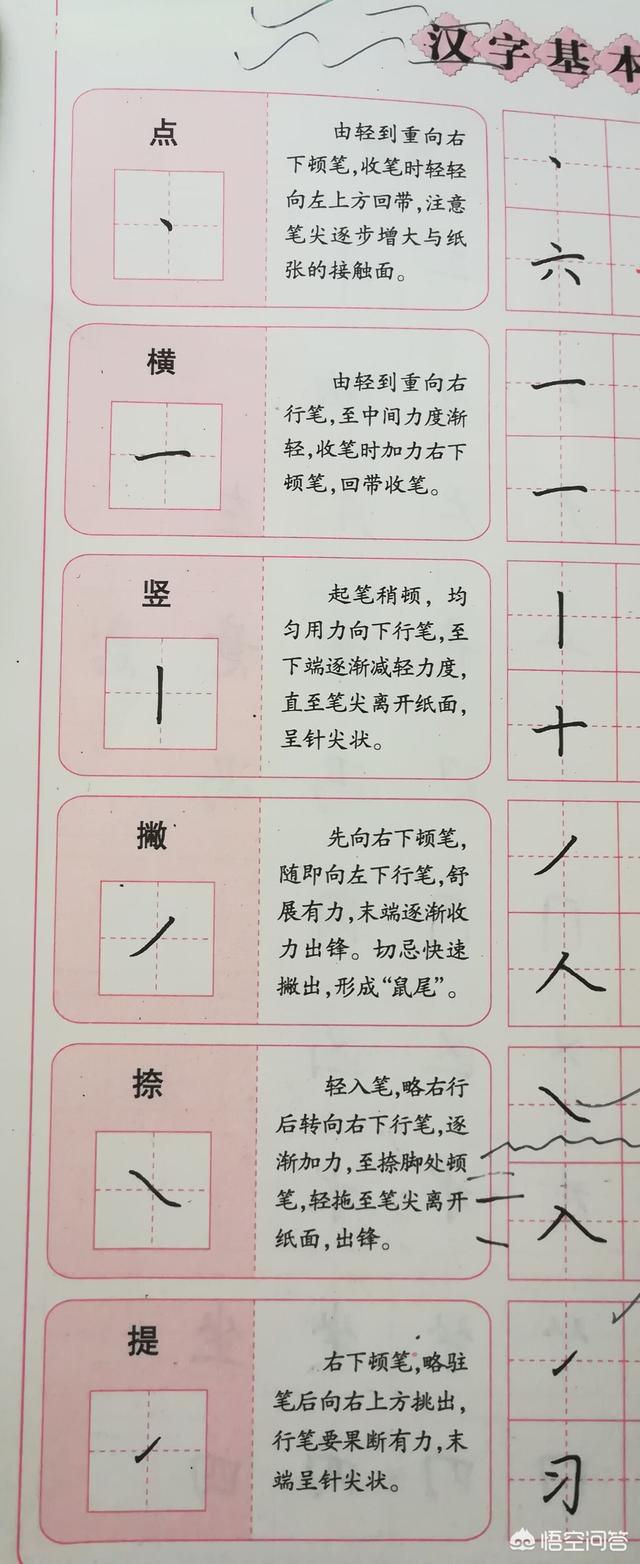 汉字基本
点
由轻到重向右
下顿笔,收笔时轻轻
向左上方回带,注意
笔尖逐步增大与纸
张的接触面。
丶
丶
六
横
由轻到重向右
行笔,至中间力度渐
轻,收笔时加力右下
顿笔,回带收笔。
一
一
一
竖
起笔稍顿，均
匀用力向下行笔,至
下端逐渐减轻力度,
直至笔尖离开纸面,
呈针尖状。
丨
丨
十
撇
先向右下顿笔,
随即向左下行笔,舒
展有力,末端逐渐收
力出锋。切忌快速
撇出,形成“鼠尾”。
丿
丿
人
捺
轻入笔,略右行
后转向右下行笔,逐
渐加力,至捺脚处顿
笔,轻拖至笔尖离开
纸面,出锋。
㇏
㇏
入
提
右下顿笔,略驻
笔后向右上方挑出,
行笔要果断有力,末
端呈针尖状。
㇀
㇀
习
悟空问答